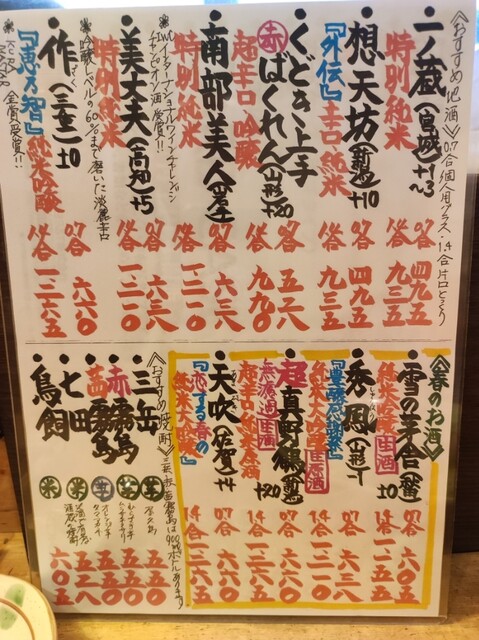 《おすすめ地酒》0.7合個人用グラス・1.4合片口とっくり
・一ノ蔵(宮城)+1〜+3
特別純米
0.7合 四九五
1.4合 九三五
・想天坊(新潟)+10
『外伝』辛口純米
0.7合 四九五
1.4合 九三五
・くどき上手
赤ばくれん(山形)+20
超辛口 吟醸
0.7合 五二八
1.4合 九九〇
・南部美人(岩手)
特別純米
0.7合 六三八
1.4合 一二一〇
※IWCインターナショナルワインチャレンジ
チャンピオン酒受賞!!
・美丈夫(高知)+5
特別純米
0.7合 六三八
1.4合 一二一〇
※吟醸レベルの60%まで磨いた淡麗辛口
・作(三重)±0
『恵乃智』純米吟醸
0.7合 六六〇
1.4合 一二六五
※KURA MASTER 金賞受賞!!
《春のお酒》
・雪の芽舎(秋田)±0
純米吟醸 生酒
0.7合 六〇五
1.4合 一一五五
・秀鳳(山形)-1
純米大吟醸 生原酒
0.7合 六三八
1.4合 一二一〇
・超真野鶴(新潟)+20
無濾過生酒
超辛口純米原酒
0.7合 六六〇
1.4合 一二六五
・天吹(佐賀)+4
『恋する春の
純米大吟醸』
0.7合 六六〇
1.4合 一二六五
《おすすめ焼酎》
・三岳
芋
五五〇
・赤霧島
芋
五五〇
・茜霧島
芋
五五〇
・七田
米
五二八
・鳥飼
米
六〇五